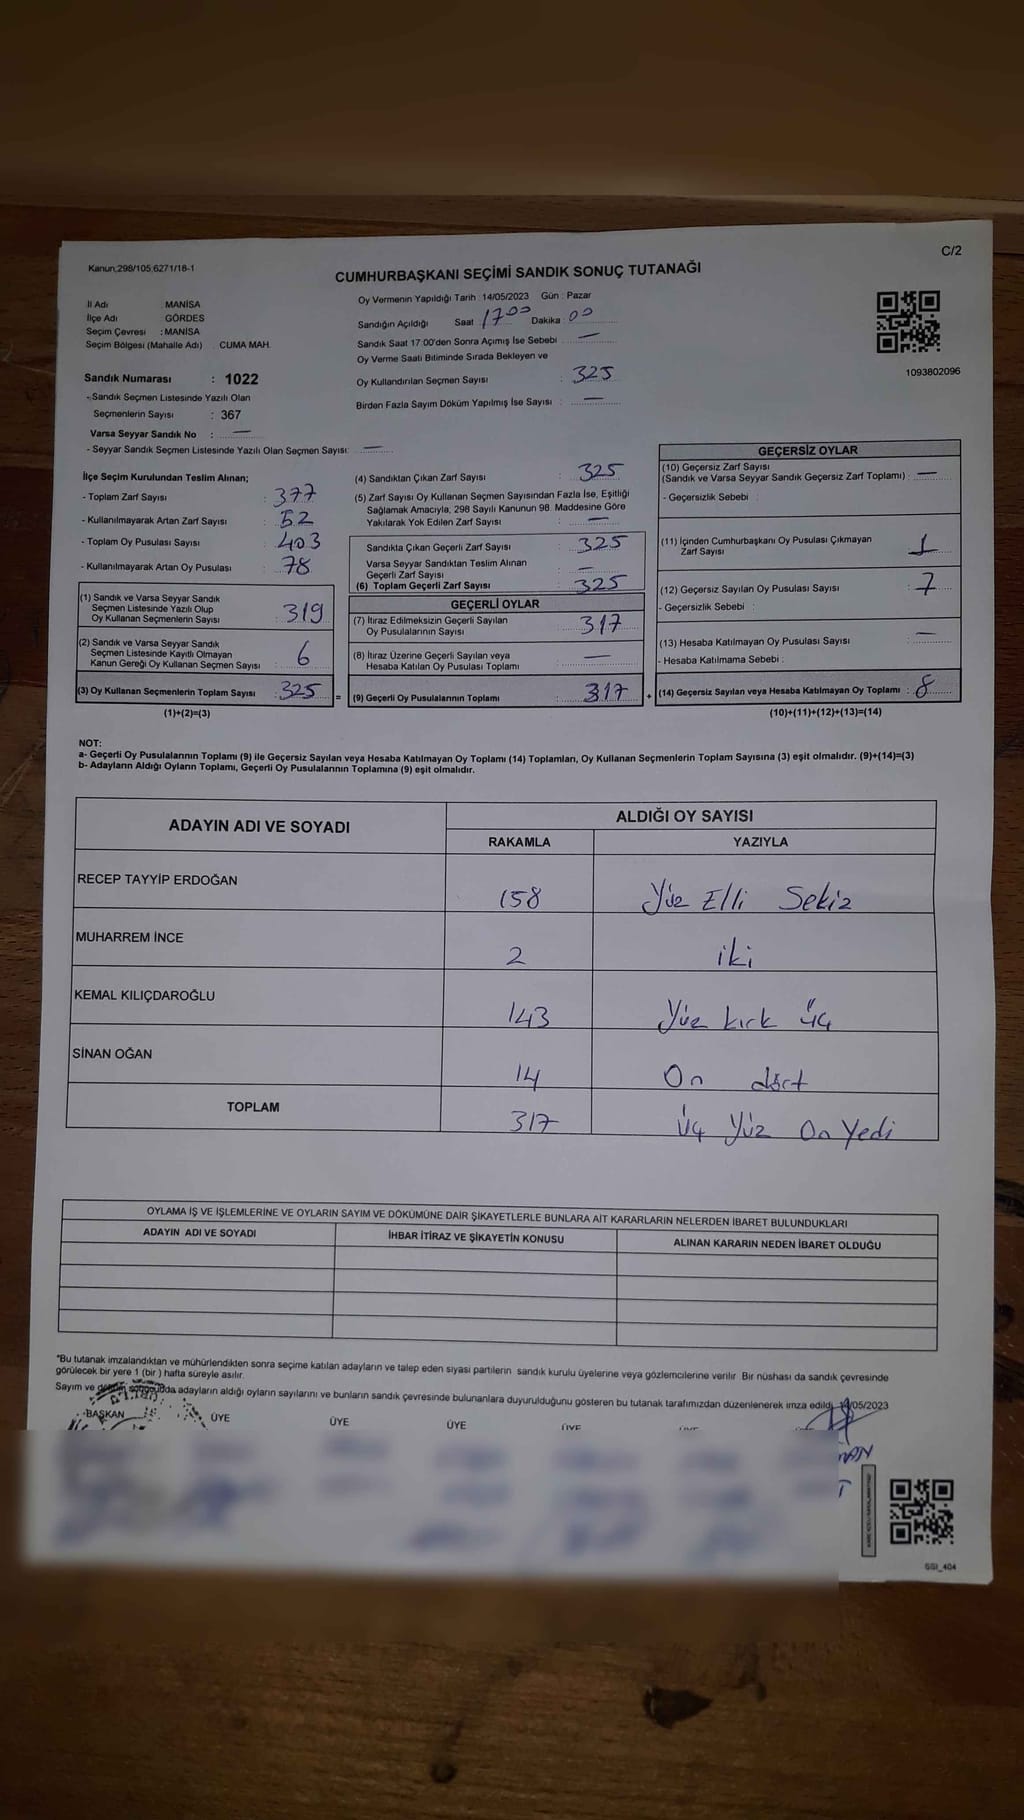 C/2
Kanun;298/105;6271/18-1
CUMHURBAŞKANI SEÇİMİ SANDIK SONUÇ TUTANAĞI
İl Adı MANİSA
İlçe Adı GÖRDES
Seçim Çevresi : MANİSA
Seçim Bölgesi (Mahalle Adı) CUMA MAH.
Sandık Numarası : 1022
- Sandık Seçmen Listesinde Yazılı Olan
Seçmenlerin Sayısı : 367
Varsa Seyyar Sandık No : —
- Seyyar Sandık Seçmen Listesinde Yazılı Olan Seçmen Sayısı: —
Oy Vermenin Yapıldığı Tarih : 14/05/2023 Gün : Pazar
Sandığın Açıldığı Saat : 17:00 Dakika : 00
Sandık Saat 17:00'den Sonra Açımış İse Sebebi : —
Oy Verme Saati Bitiminde Sırada Bekleyen ve
Oy Kullandırılan Seçmen Sayısı : 325
Birden Fazla Sayım Döküm Yapılmış İse Sayısı : —
1093802096
İlçe Seçim Kurulundan Teslim Alınan;
- Toplam Zarf Sayısı : 377
- Kullanılmayarak Artan Zarf Sayısı : 52
- Toplam Oy Pusulası Sayısı : 403
- Kullanılmayarak Artan Oy Pusulası : 78
(1) Sandık ve Varsa Seyyar Sandık
Seçmen Listesinde Yazılı Olup
Oy Kullanan Seçmenlerin Sayısı : 319
(2) Sandık ve Varsa Seyyar Sandık
Seçmen Listesinde Kayıtlı Olmayan
Kanun Gereği Oy Kullanan Seçmen Sayısı : 6
(3) Oy Kullanan Seçmenlerin Toplam Sayısı : 325 =
(1)+(2)=(3)
(4) Sandıktan Çıkan Zarf Sayısı : 325
(5) Zarf Sayısı Oy Kullanan Seçmen Sayısından Fazla İse, Eşitliği
Sağlamak Amacıyla, 298 Sayılı Kanunun 98. Maddesine Göre
Yakılarak Yok Edilen Zarf Sayısı : —
Sandıkta Çıkan Geçerli Zarf Sayısı : 325
Varsa Seyyar Sandıktan Teslim Alınan
Geçerli Zarf Sayısı : —
(6) Toplam Geçerli Zarf Sayısı : 325
GEÇERLİ OYLAR
(7) İtiraz Edilmeksizin Geçerli Sayılan
Oy Pusulalarının Sayısı : 317
(8) İtiraz Üzerine Geçerli Sayılan veya
Hesaba Katılan Oy Pusulası Toplamı : —
(9) Geçerli Oy Pusulalarının Toplamı : 317 +
GEÇERSİZ OYLAR
(10) Geçersiz Zarf Sayısı
(Sandık ve Varsa Seyyar Sandık Geçersiz Zarf Toplamı) : —
- Geçersizlik Sebebi :
(11) İçinden Cumhurbaşkanı Oy Pusulası Çıkmayan
Zarf Sayısı : 1
(12) Geçersiz Sayılan Oy Pusulası Sayısı : 7
- Geçersizlik Sebebi :
(13) Hesaba Katılmayan Oy Pusulası Sayısı : —
- Hesaba Katılmama Sebebi :
(14) Geçersiz Sayılan veya Hesaba Katılmayan Oy Toplamı : 8
(10)+(11)+(12)+(13)=(14)
NOT:
a- Geçerli Oy Pusulalarının Toplamı (9) ile Geçersiz Sayılan veya Hesaba Katılmayan Oy Toplamı (14) Toplamları, Oy Kullanan Seçmenlerin Toplam Sayısına (3) eşit olmalıdır. (9)+(14)=(3)
b- Adayların Aldığı Oyların Toplamı, Geçerli Oy Pusulalarının Toplamına (9) eşit olmalıdır.
ADAYIN ADI VE SOYADI ALDIĞI OY SAYISI
RAKAMLA YAZIYLA
RECEP TAYYİP ERDOĞAN 158 Yüz Elli Sekiz
MUHARREM İNCE 2 iki
KEMAL KILIÇDAROĞLU 143 Yüz kırk üç
SİNAN OĞAN 14 On dört
TOPLAM 317 Üç Yüz On Yedi
OYLAMA İŞ VE İŞLEMLERİNE VE OYLARIN SAYIM VE DÖKÜMÜNE DAİR ŞİKAYETLERLE BUNLARA AİT KARARLARIN NELERDEN İBARET BULUNDUKLARI
ADAYIN ADI VE SOYADI İHBAR İTİRAZ VE ŞİKAYETİN KONUSU ALINAN KARARIN NEDEN İBARET OLDUĞU
*Bu tutanak imzalandıktan ve mühürlendikten sonra seçime katılan adayların ve talep eden siyasi partilerin sandık kurulu üyelerine veya gözlemcilerine verilir. Bir nüshası da sandık çevresinde
görülecek bir yere 1 (bir) hafta süreyle asılır.
Sayım ve döküm sonucunda adayların aldığı oyların sayılarını ve bunların sandık çevresinde bulunanlara duyurulduğunu gösteren bu tutanak tarafımızdan düzenlenerek imza edildi. 14/05/2023
BAŞKAN ÜYE ÜYE ÜYE ÜYE
SSI_404